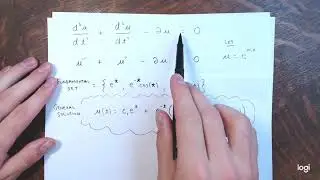 d³u/dt³ + d²u/dt² − 2u = 0
u‴ + u″ − 2u = 0
LET
u = e
FUNDAMENTAL SET = { eᵗ, e⁻ᵗcos(t),
GENERAL SOLUTION u(t) = c₁eᵗ + e⁻ᵗ(
logi